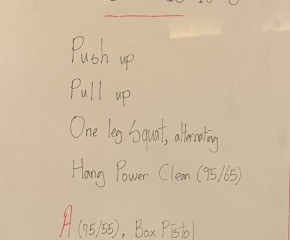 Push up
Pull up
One leg Squat, alternating
Hang Power Clean (95/65)
A (75/55), Box Pistol